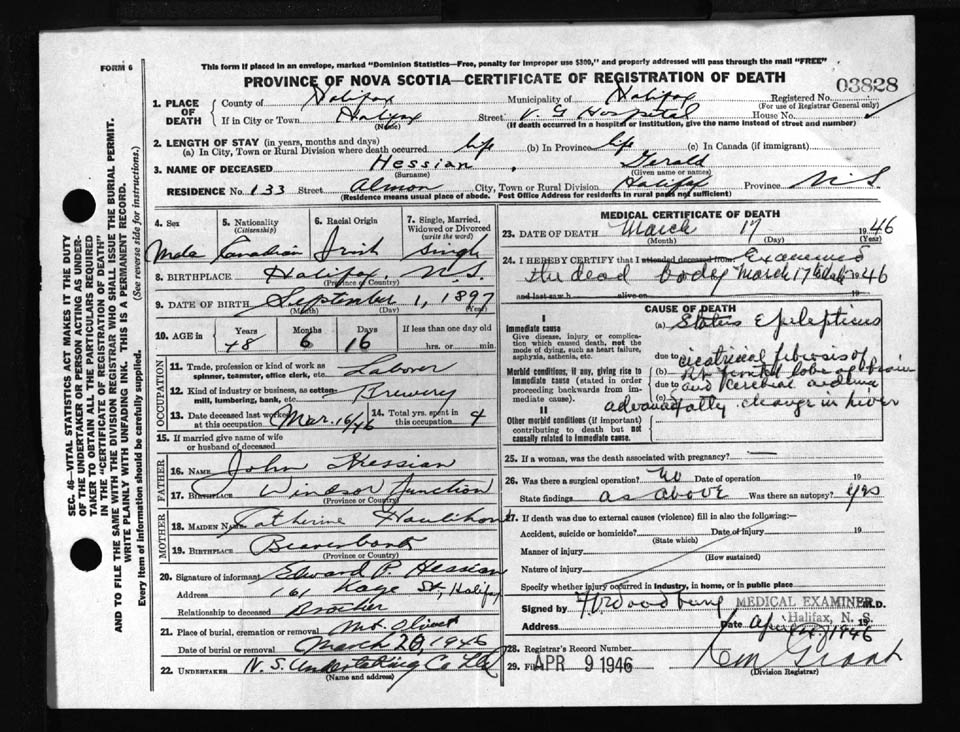 FORM 6
This form if placed in an envelope, marked "Dominion Statistics—Free, penalty for improper use $300," and properly addressed will pass through the mail "FREE"
PROVINCE OF NOVA SCOTIA—CERTIFICATE OF REGISTRATION OF DEATH
03828
1. PLACE OF DEATH
County of Halifax Municipality of Halifax Registered No.
(For use of Registrar General only)
If in City or Town Halifax Street V. G Hospital House No.
(Name) (If death occurred in a hospital or institution, give the name instead of street and number)
2. LENGTH OF STAY (in years, months and days)
(a) In City, Town or Rural Division where death occurred life (b) In Province life (c) In Canada (if immigrant)
3. NAME OF DECEASED Hessian, Gerald
(Surname) (Given name or names)
RESIDENCE No. 133 Street Almon City, Town or Rural Division Halifax Province N.S.
(Residence means usual place of abode. Post Office Address for residents in rural parts not sufficient)
4. Sex 5. Nationality (Citizenship) 6. Racial Origin 7. Single, Married, Widowed or Divorced (write the word)
Male Canadian Irish Single
8. BIRTHPLACE Halifax, N.S.
(Province or Country)
9. DATE OF BIRTH September 1, 1897
(Month) (Day) (Year)
10. AGE in Years Months Days If less than one day
48 6 16 hrs. or min.
OCCUPATION
11. Trade, profession or kind of work as spinner, teamster, office clerk, etc. Laborer
12. Kind of industry or business, as cotton-mill, lumbering, bank, etc. Brewery
13. Date deceased last worked at this occupation Mar. 16/46 14. Total yrs. spent in this occupation 4
15. If married give name of wife or husband of deceased
FATHER
16. NAME John Hessian
17. BIRTHPLACE Windsor Junction
(Province or Country)
MOTHER
18. MAIDEN NAME Catherine
19. BIRTHPLACE Beaverbank
(Province or Country)
20. Signature of informant Edward P. Hessian
Address 161 Kaye St, Halifax
Relationship to deceased Brother
21. Place of burial, cremation or removal Mt. Olivet
Date of burial or removal March 20, 1946
22. UNDERTAKER N. S. Undertaking Co Ltd
(Name and address)
MEDICAL CERTIFICATE OF DEATH
23. DATE OF DEATH March 17 1946
(Month) (Day) (Year)
24. I HEREBY CERTIFY that I attended deceased from Examined
the dead body March 17 1946
and last saw h alive on 19
CAUSE OF DEATH
I
Immediate cause
Give disease, injury or complication which caused death, not the mode of dying, such as heart failure, asphyxia, asthenia, etc.
(a) Status Epilepticus
due to
Morbid conditions, if any, giving rise to immediate cause (stated in order proceeding backwards from immediate cause).
(b) cicatricial fibrosis of
Rt frontal lobe of brain
due to and Cerebral
(c)
advanced fatty change in liver
II
Other morbid conditions (if important) contributing to death but not causally related to immediate cause.
25. If a woman, was the death associated with pregnancy? —
26. Was there a surgical operation? No Date of operation 19
State findings as above Was there an autopsy? yes
27. If death was due to external causes (violence) fill in also the following:—
Accident, suicide or homicide? Date of injury 19
(State which)
Manner of injury
(How sustained)
Nature of injury
Specify whether injury occurred in industry, in home, or in public place
Signed by MEDICAL EXAMINER M.D.
Address Halifax, N. S. Date April 1946
28. Registrar's Record Number
29. Filed APR 9 1946
(Division Registrar)
SEC. 46—VITAL STATISTICS ACT MAKES IT THE DUTY
OF THE UNDERTAKER OR PERSON ACTING AS UNDER-
TAKER TO OBTAIN ALL THE PARTICULARS REQUIRED
IN THE "CERTIFICATE OF REGISTRATION OF DEATH"
AND TO FILE THE SAME WITH THE DIVISION REGISTRAR WHO SHALL ISSUE THE BURIAL PERMIT.
WRITE PLAINLY WITH UNFADING INK. THIS IS A PERMANENT RECORD.
Every item of information should be carefully supplied. (See reverse side for instructions.)